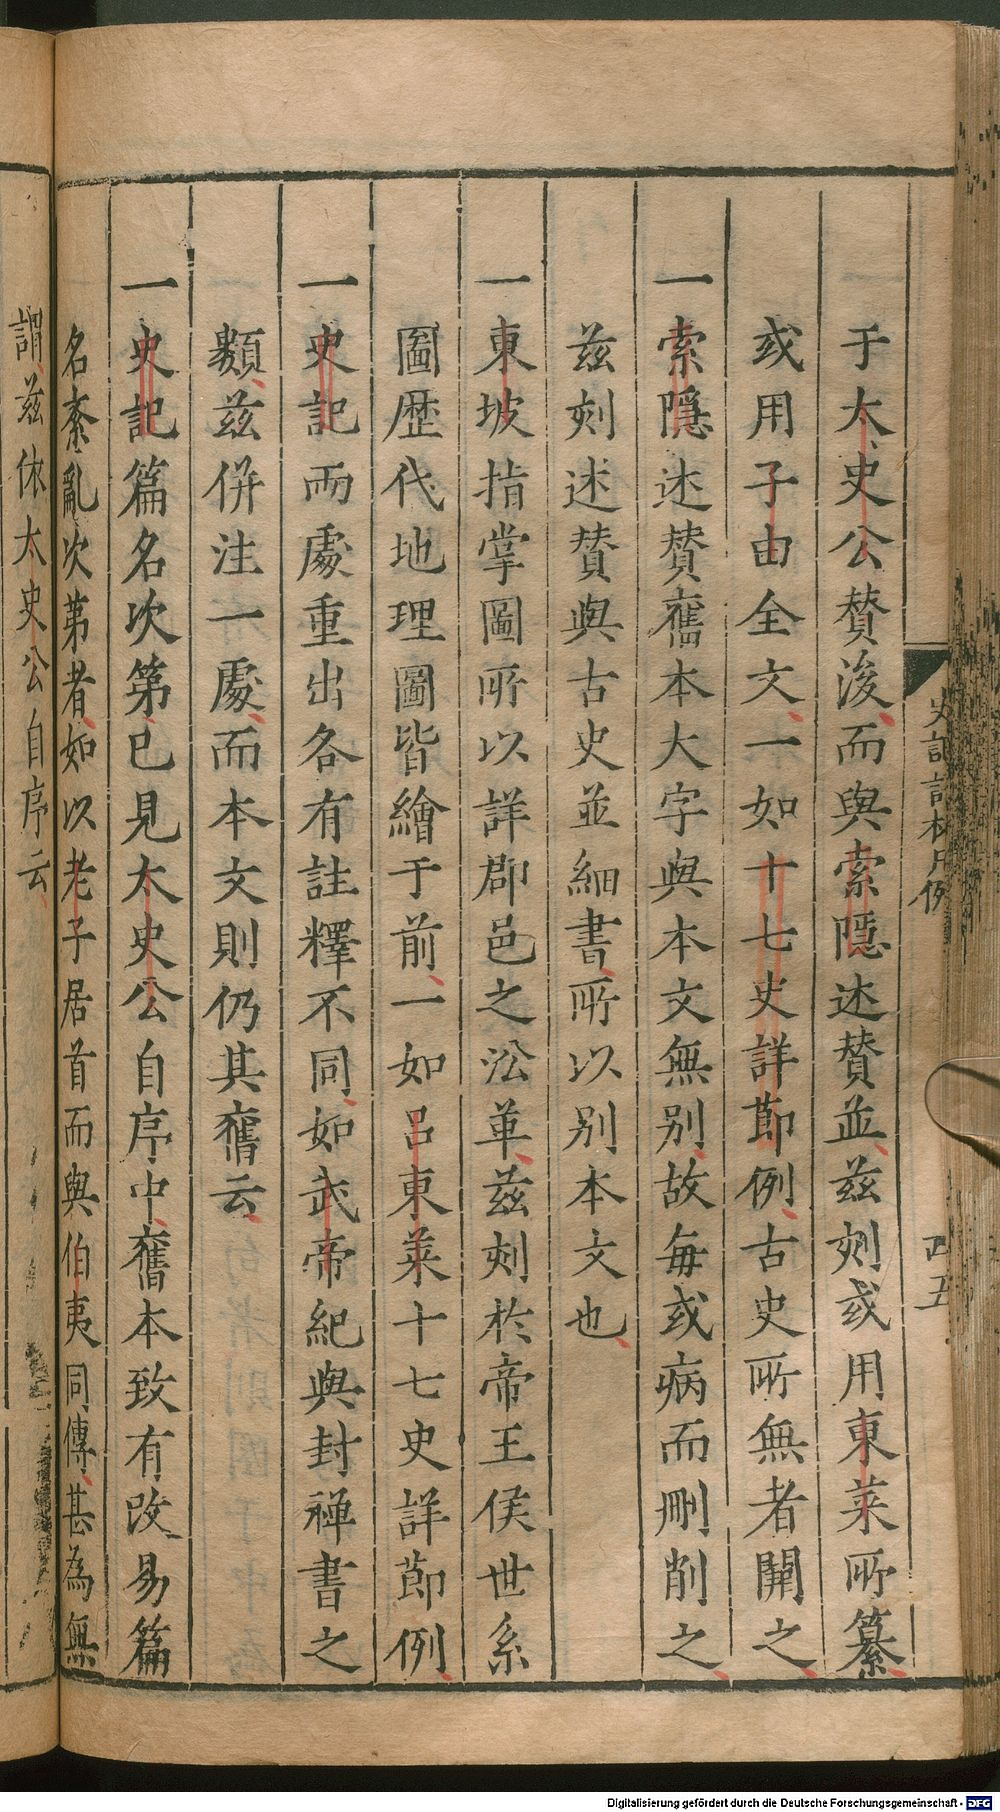 于太史公贊後而與索隱述贊並茲刻或用東萊所纂
或用子由全文一如十七史詳節例古史所無者闕之
一索隱述贊舊本大字與本文無別故每或病而刪削之
茲刻述贊與古史並細書所以別本文也
一東坡指掌圖所以詳郡邑之沿革茲刻於帝王侯世系
圖歷代地理圖皆繪于前一如呂東萊十七史詳節例
一史記兩處重出各有註釋不同如武帝紀與封禅書之
類茲併注一處而本文則仍其舊云
一史記篇名次第已見太史公自序中舊本致有改易篇
名紊亂次第者如以老子居首而與伯夷同傳甚為無
謂茲依太史公自序云
Digitalisierung gefördert durch die Deutsche Forschungsgemeinschaft - DFG